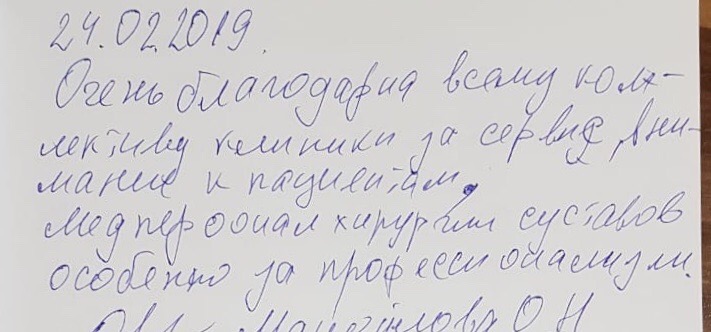 24.02.2019.
Очень благодарна всему кол-
лективу клиники за сервис, вни-
мание к пациентам,
Медперсонал хирургии суставов
особенно за профессионализм.
О.Н